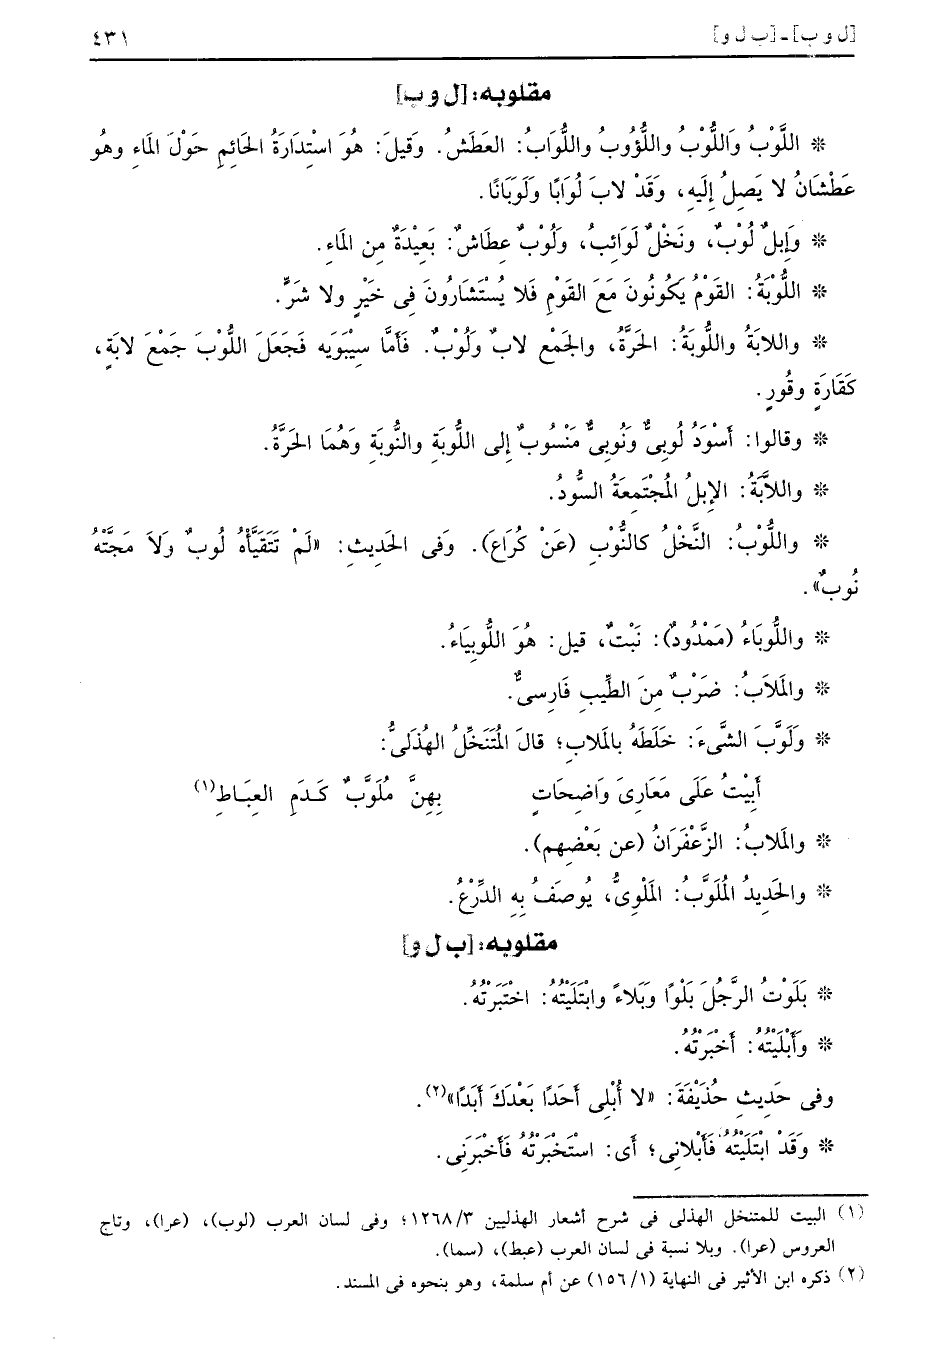 [ل و ب] ـ [ب ل و] ٤٣١
مقلوبه: [ل و ب]
* اللَّوْبُ وَاللُّوْبُ واللُّؤُوبُ واللُّوَابُ: العَطَشُ. وَقِيلَ: هُوَ اسْتِدَارَةُ الحَائِمِ حَوْلَ المَاءِ وهُو
عَطْشَانُ لا يَصِلُ إِلَيهِ، وَقَدْ لابَ لُوَابًا وَلَوَبَانًا.
* وَإِبلٌ لُوْبٌ، ونَخْلٌ لَوَائبُ، ولُوْبٌ عِطَاشٌ: بَعِيْدَةٌ مِنِ المَاءِ.
* اللُّوْبَةُ: القَوْمُ يَكُونُونَ مَعَ القَوْمِ فَلا يُسْتَشَارُونَ فِى خَيْرٍ ولا شَرٍّ.
* واللابَةُ واللُّوبَةُ: الحَرَّةُ، والجَمْع لابٌ ولُوْبٌ. فَأَمَّا سِيْبَوَيه فَجَعَلَ اللُّوْبَ جَمْعَ لابَةٍ،
كَقَارَةٍ وقُورٍ.
* وقالوا: أَسْوَدُ لُوبِىٌّ ونُوبِىٌّ مَنْسُوبٌ إِلى اللُّوبَةِ والنُّوبَةِ وَهُمَا الحَرَّةُ.
* واللاَّبَةُ: الإبلُ المُجْتَمِعَةُ السُّودُ.
* واللُّوْبُ: النَّخْلُ كالنُّوْبِ (عَنْ كُرَاعَ). وَفى الحَدِيثِ: «لَمْ تَتَقَيَّأْهُ لُوبٌ وَلاَ مَجَّتْهُ
نُوبٌ».
* واللُّوبَاءُ (مَمْدُودٌ): نَبْتٌ، قيل: هُوَ اللُّوبِيَاءُ.
* والمَلاَبُ: ضَرْبٌ مِنَ الطِّيبِ فَارِسىٌّ.
* ولَوَّبَ الشَّىءَ: خَلَطَهُ بالمَلابِ؛ قالَ المُتَنَخِّلُ الهُذَلىُّ:
أَبِيْتُ عَلَى مَعَارِىَ وَاضِحَاتٍ بِهِنَّ مُلَوَّبٌ كَـدَمِ العِبَـاطِ(١)
* والمَلابُ: الزَّعْفَرَانُ (عن بَعْضِهم).
* والحَدِيدُ المُلَوَّبُ: المَلْوِىُّ، يُوصَفُ بِهِ الدِّرْعُ.
مقلوبه: [ب ل و]
* بَلَوْتُ الرَّجُلَ بَلْوًا وَبَلاءً وابْتَلَيْتُهُ: اخْتَبَرْتُهُ.
* وَأَبْلَيْتُهُ: أَخْبَرْتُهُ.
وفى حَدِيثِ حُذَيْفَةَ: «لا أُبْلِى أَحَدًا بَعْدَكَ أَبَدًا»(٢).
* وَقَدْ ابْتَلَيْتُهُ فَأَبْلانِى؛ أَى: اسْتَخْبَرْتُهُ فَأَخْبَرَنِى.
(١) البيت للمتنخل الهذلى فى شرح أشعار الهذليين ١٢٦٨/٣؛ وفى لسان العرب (لوب)، (عرا)، وتاج
العروس (عرا). وبلا نسبة فى لسان العرب (عبط)، (سما).
(٢) ذكره ابن الأثير فى النهاية (١٥٦/١) عن أم سلمة، وهو بنحوه فى المسند.